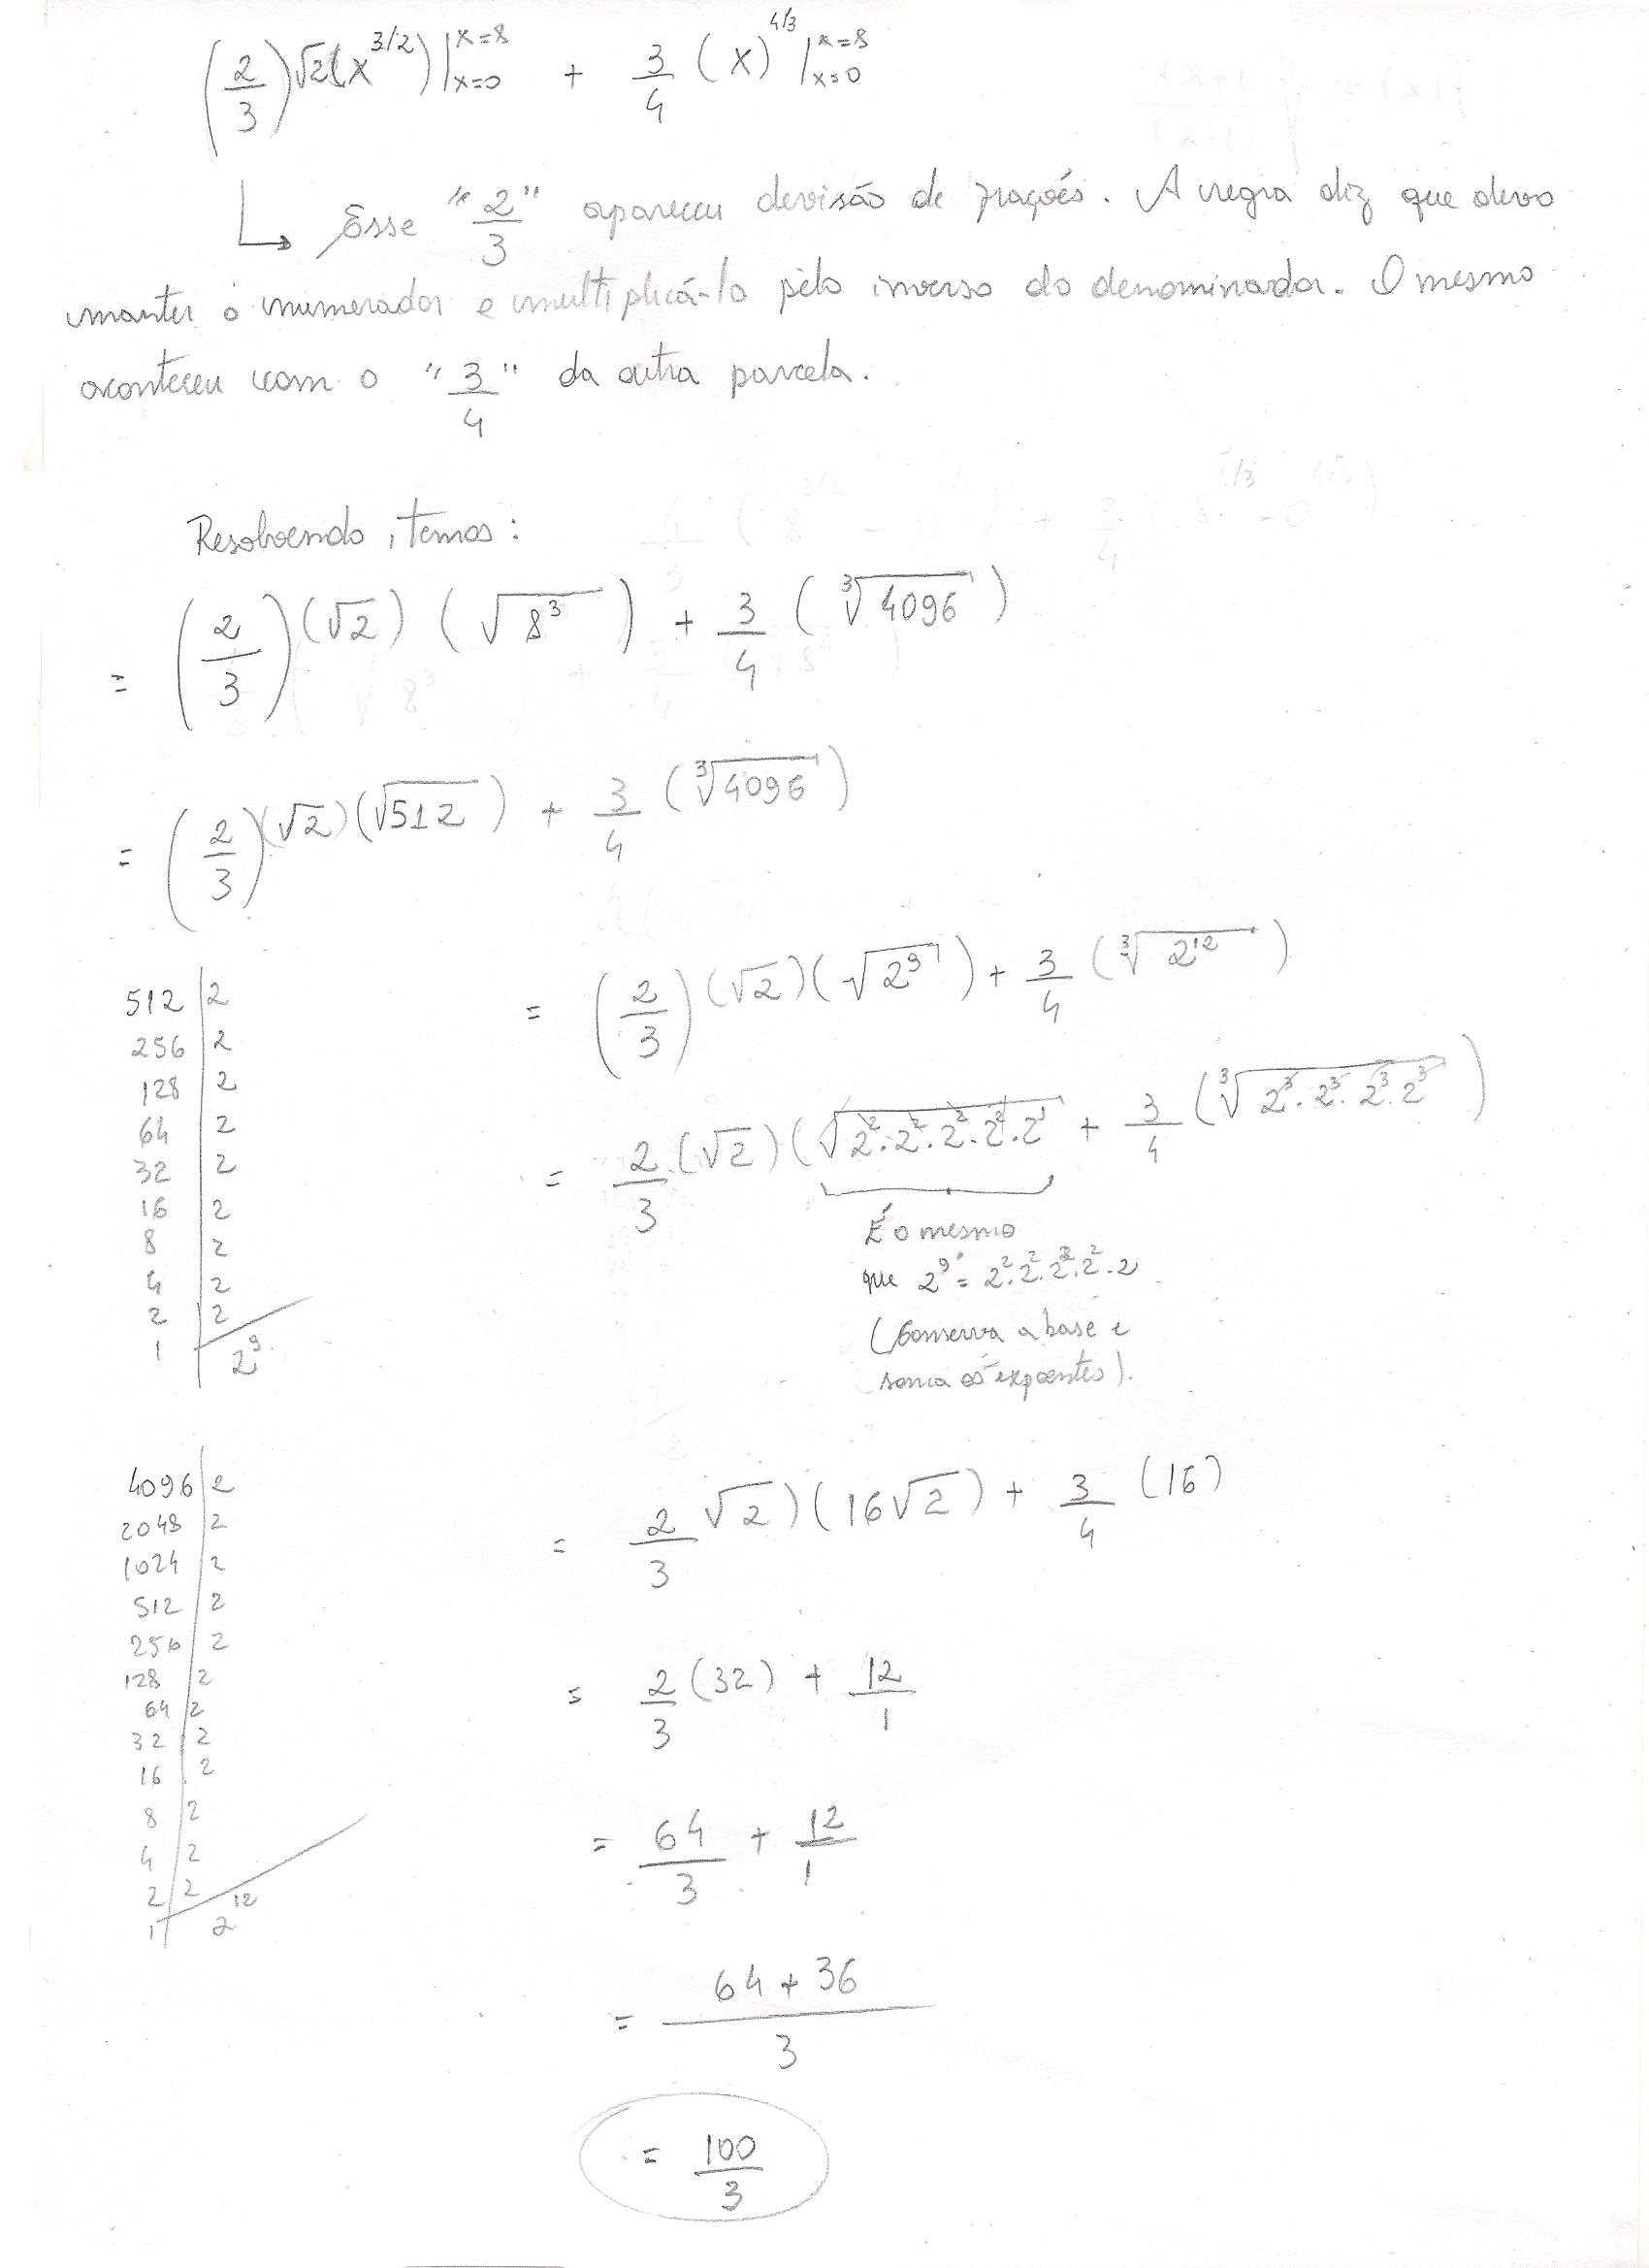 (2/3) √2 (x^3/2) |x=8 x=0 + 3/4 (x)^4/3 |x=8 x=0
↳ Esse "2/3" apareceu devisão de frações. A regra diz que devo
manter o numerador e multiplicá-lo pelo inverso do denominador. O mesmo
aconteceu com o "3/4" da outra parcela.
Resolvendo, temos:
= (2/3) (√2) (√8^3) + 3/4 (∛4096)
= (2/3) (√2) (√512) + 3/4 (∛4096)
512 | 2
256 | 2
128 | 2
64 | 2
32 | 2
16 | 2
8 | 2
4 | 2
2 | 2
1 | 2^9
= (2/3) (√2) (√2^9) + 3/4 (∛2^12)
= 2/3 (√2) (√2^2 . 2^2 . 2^2 . 2^2 . 2^1 + 3/4 (∛2^3 . 2^3 . 2^3 . 2^3)
É o mesmo
que 2^9 = 2^2 . 2^2 . 2^2 . 2^2 . 2
(Conserva a base e
soma os expoentes).
4096 | 2
2048 | 2
1024 | 2
512 | 2
256 | 2
128 | 2
64 | 2
32 | 2
16 | 2
8 | 2
4 | 2
2 | 2
1 | 2^12
= 2/3 √2) (16√2) + 3/4 (16)
= 2/3 (32) + 12/1
= 64/3 + 12/1
= 64 + 36 / 3
= 100/3